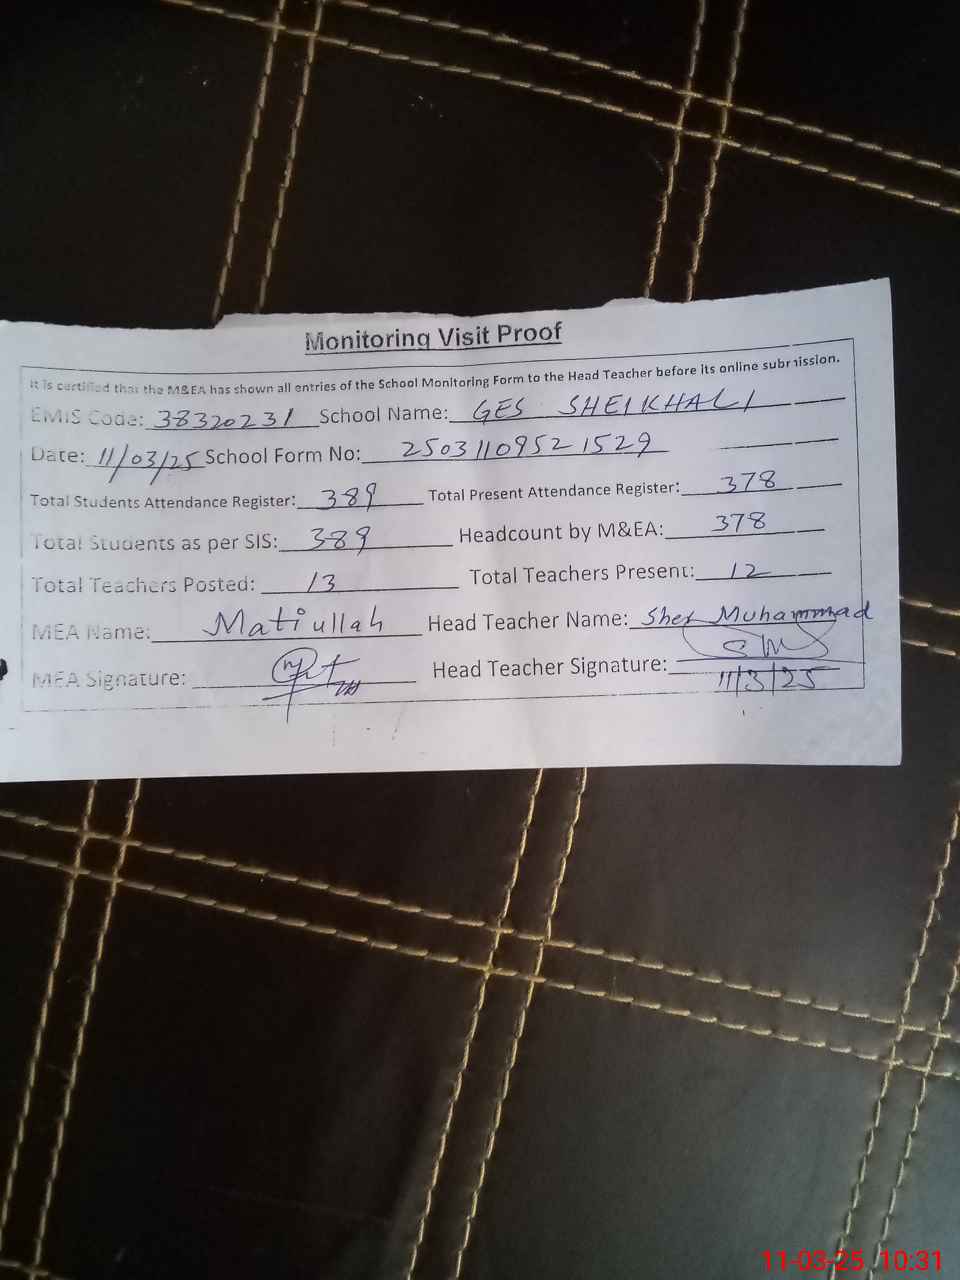 Monitoring Visit Proof
It is certified that the M&EA has shown all entries of the School Monitoring Form to the Head Teacher before its online submission.
EMIS Code: 38320231 School Name: GES SHEIKHALI
Date: 11/03/25 School Form No: 25031109521529
Total Students Attendance Register: 389 Total Present Attendance Register: 378
Total Students as per SIS: 389 Headcount by M&EA: 378
Total Teachers Posted: 13 Total Teachers Present: 12
MEA Name: Matiullah Head Teacher Name: Sher Muhammad
MEA Signature: Head Teacher Signature: SM
11/3/25
11-03-25 10:31